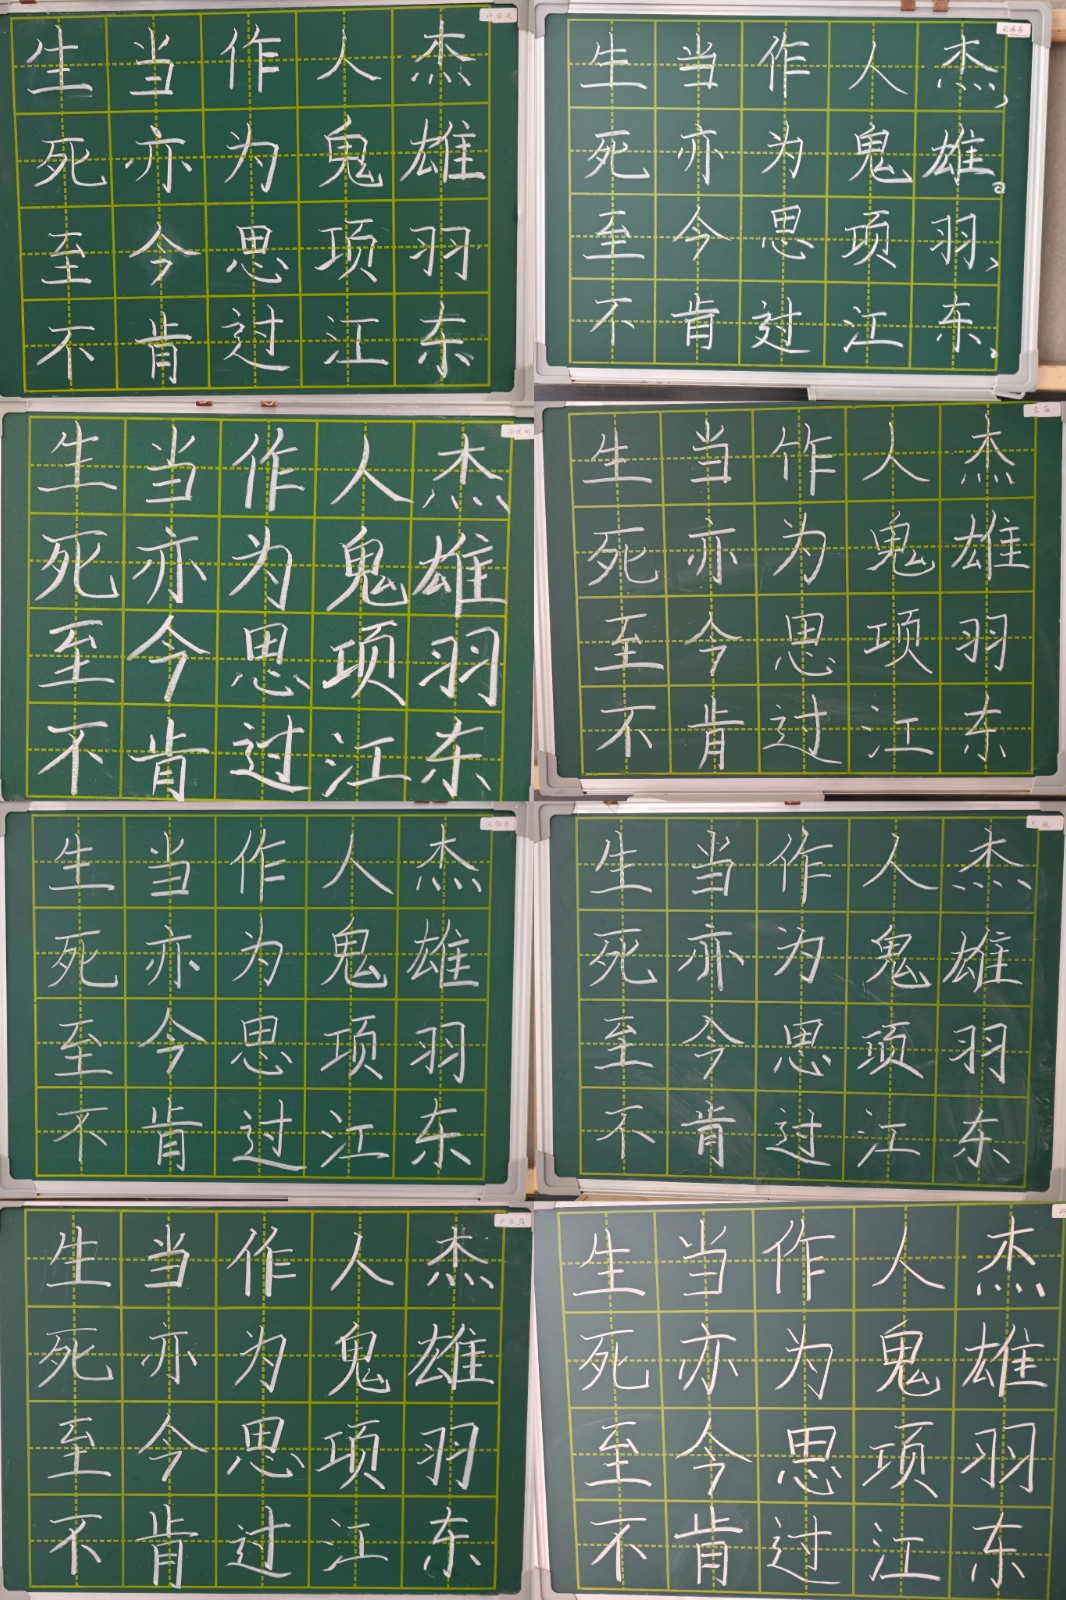 生当作人杰
死亦为鬼雄
至今思项羽
不肯过江东
生当作人杰，
死亦为鬼雄。
至今思项羽，
不肯过江东。
生当作人杰
死亦为鬼雄
至今思项羽
不肯过江东
生当作人杰
死亦为鬼雄
至今思项羽
不肯过江东
生当作人杰
死亦为鬼雄
至今思项羽
不肯过江东
生当作人杰
死亦为鬼雄
至今思项羽
不肯过江东
生当作人杰
死亦为鬼雄
至今思项羽
不肯过江东
生当作人杰
死亦为鬼雄
至今思项羽
不肯过江东